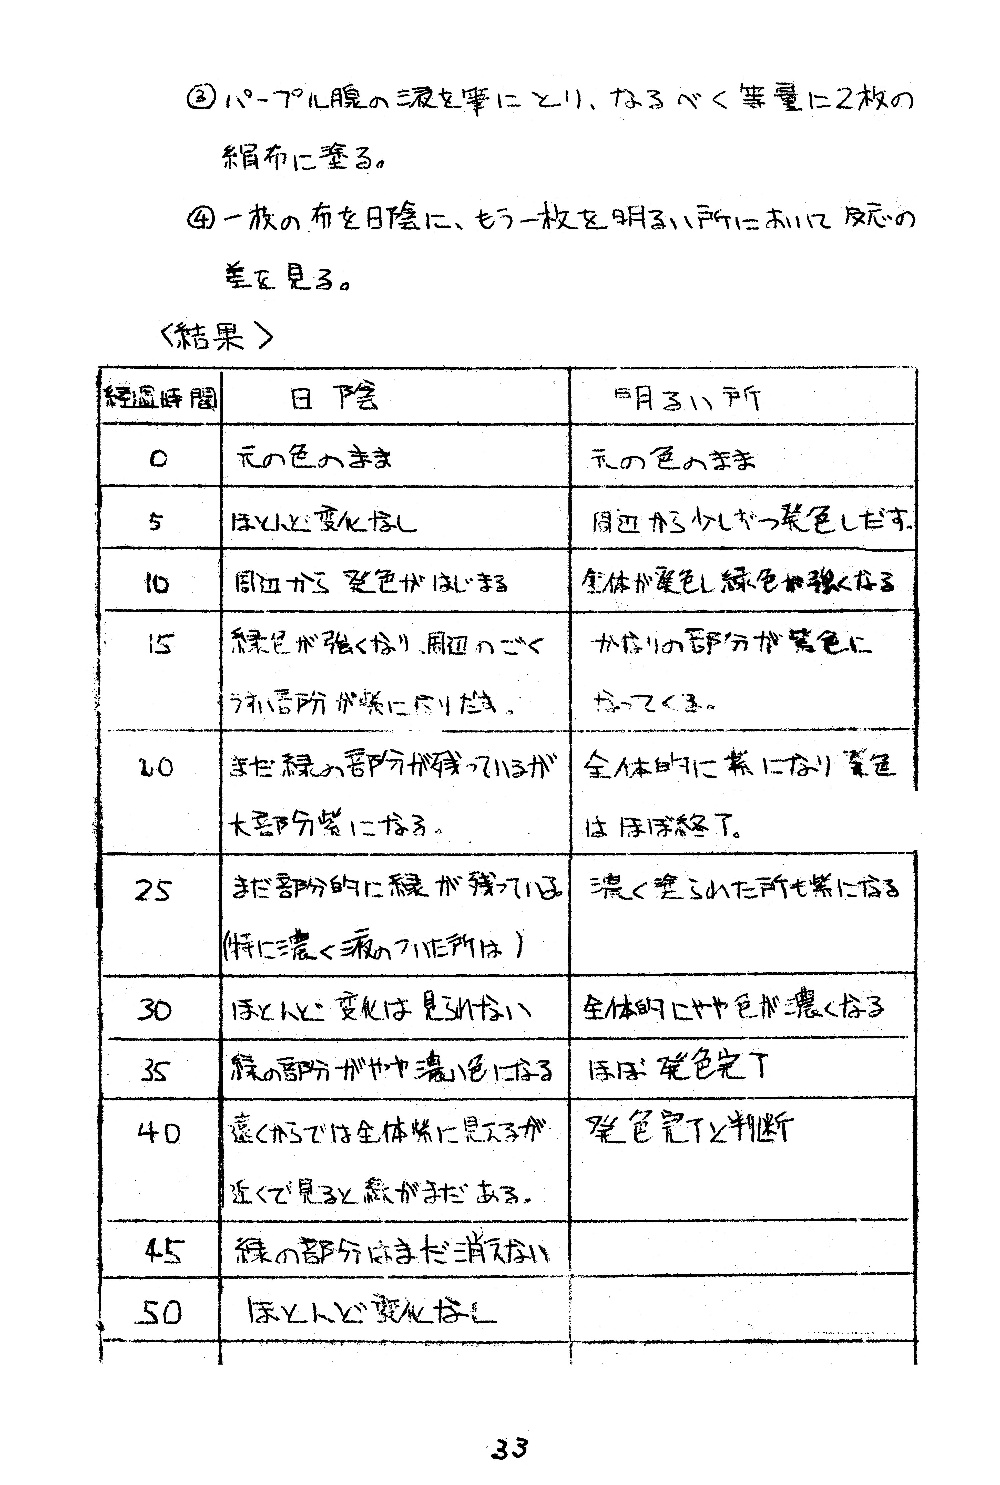 ③パープル腺の液を筆にとり、なるべく等量に2枚の
絹布に塗る。
④一枚の布を日陰に、もう一枚を明るい所において反応の
差を見る。
〈結果〉
経過時間 日陰 明るい所
0 元の色のまま 元の色のまま
5 ほとんど変化なし 周辺から少しずつ発色しだす。
10 周辺から発色がはじまる 全体が発色し緑色が強くなる
15 緑色が強くなり、周辺のごく かなりの部分が紫色に
うすい部分が紫になりだす。 なってくる。
20 まだ緑の部分が残っているが 全体的に紫になり発色
大部分紫になる。 はほぼ終了。
25 まだ部分的に緑が残っている 濃く塗られた所も紫になる
(特に濃く液のついた所は)
30 ほとんど変化は見られない 全体的にやや色が濃くなる
35 緑の部分がやや濃い色になる ほぼ発色完了
40 遠くからでは全体紫に見えるが 発色完了と判断
近くで見ると緑がまだある。
45 緑の部分はまだ消えない
50 ほとんど変化なし
33